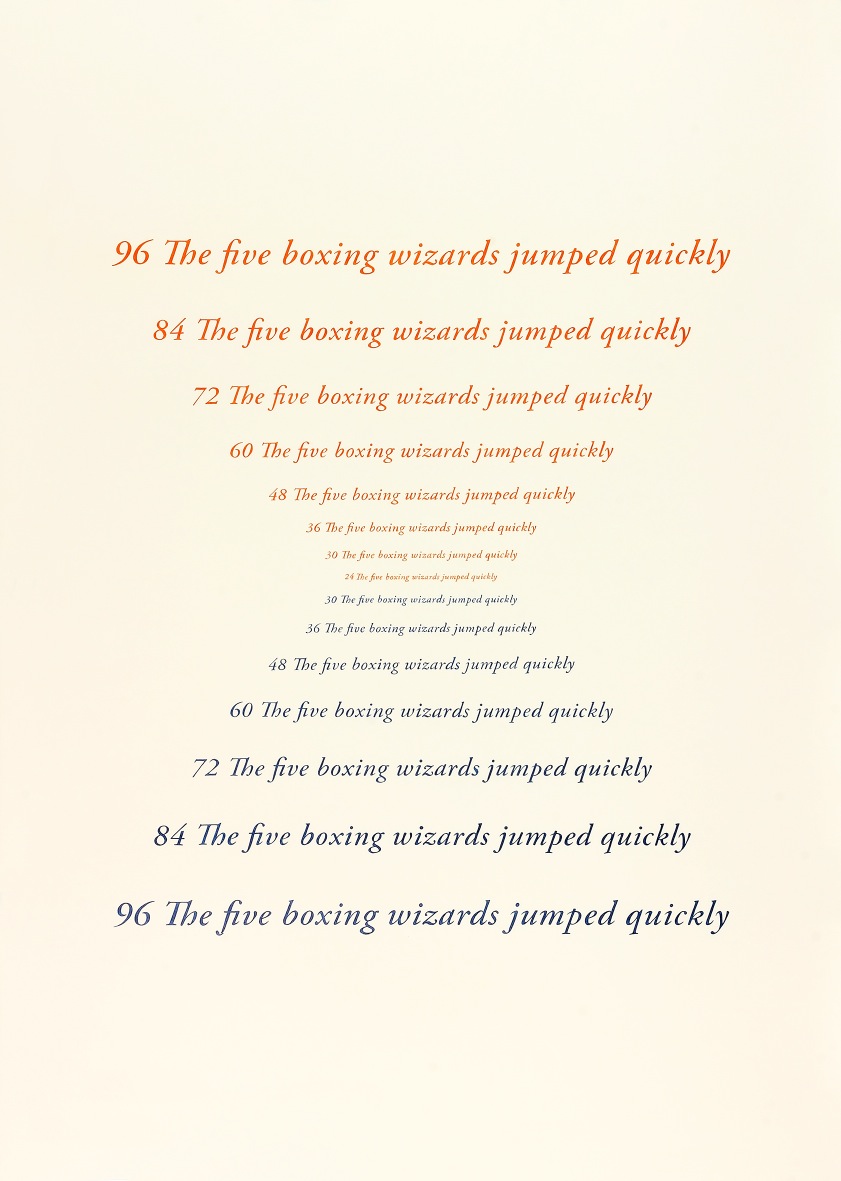 96 The five boxing wizards jumped quickly
84 The five boxing wizards jumped quickly
72 The five boxing wizards jumped quickly
60 The five boxing wizards jumped quickly
48 The five boxing wizards jumped quickly
36 The five boxing wizards jumped quickly
30 The five boxing wizards jumped quickly
24 The five boxing wizards jumped quickly
30 The five boxing wizards jumped quickly
36 The five boxing wizards jumped quickly
48 The five boxing wizards jumped quickly
60 The five boxing wizards jumped quickly
72 The five boxing wizards jumped quickly
84 The five boxing wizards jumped quickly
96 The five boxing wizards jumped quickly